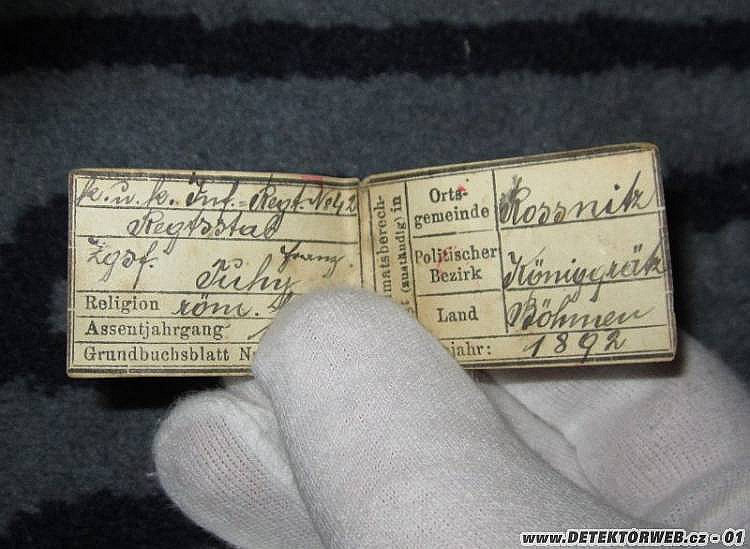 k. u. k. Inf.-Regt. No 42
Regtsstab
Zgsf. Tuhy Franz.
Religion röm.
Assentjahrgang
Grundbuchsblatt N
matsberech-
t (zuständig) in
Orts-
gemeinde Rossnitz
Politischer
Bezirk Königgrätz
Land Böhmen
jahr: 1892
www.DETEKTORWEB.cz - 01